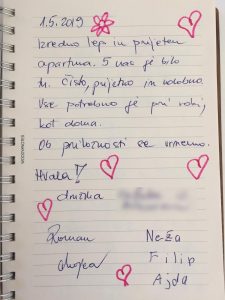 1.5.2019
Izredno lep in prijeten
apartma. 5 nas je bilo
tu. Čisto, prijetno in udobno.
Vse potrebno je pri roki,
kot doma.
Ob priložnosti se vrnemo.
Hvala!
družina
Roman
Neža
Filip
Ajda